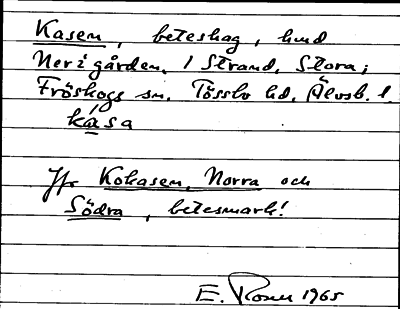 Kasen, beteshag, hmd
Neri gården, 1 Strand, Stora;
Fröskogs sn. Tössbo hd. Älvsb. l.
kåsa
Jfr Kokasen, Norra och
Södra, betesmark!
E. Rosen 1965